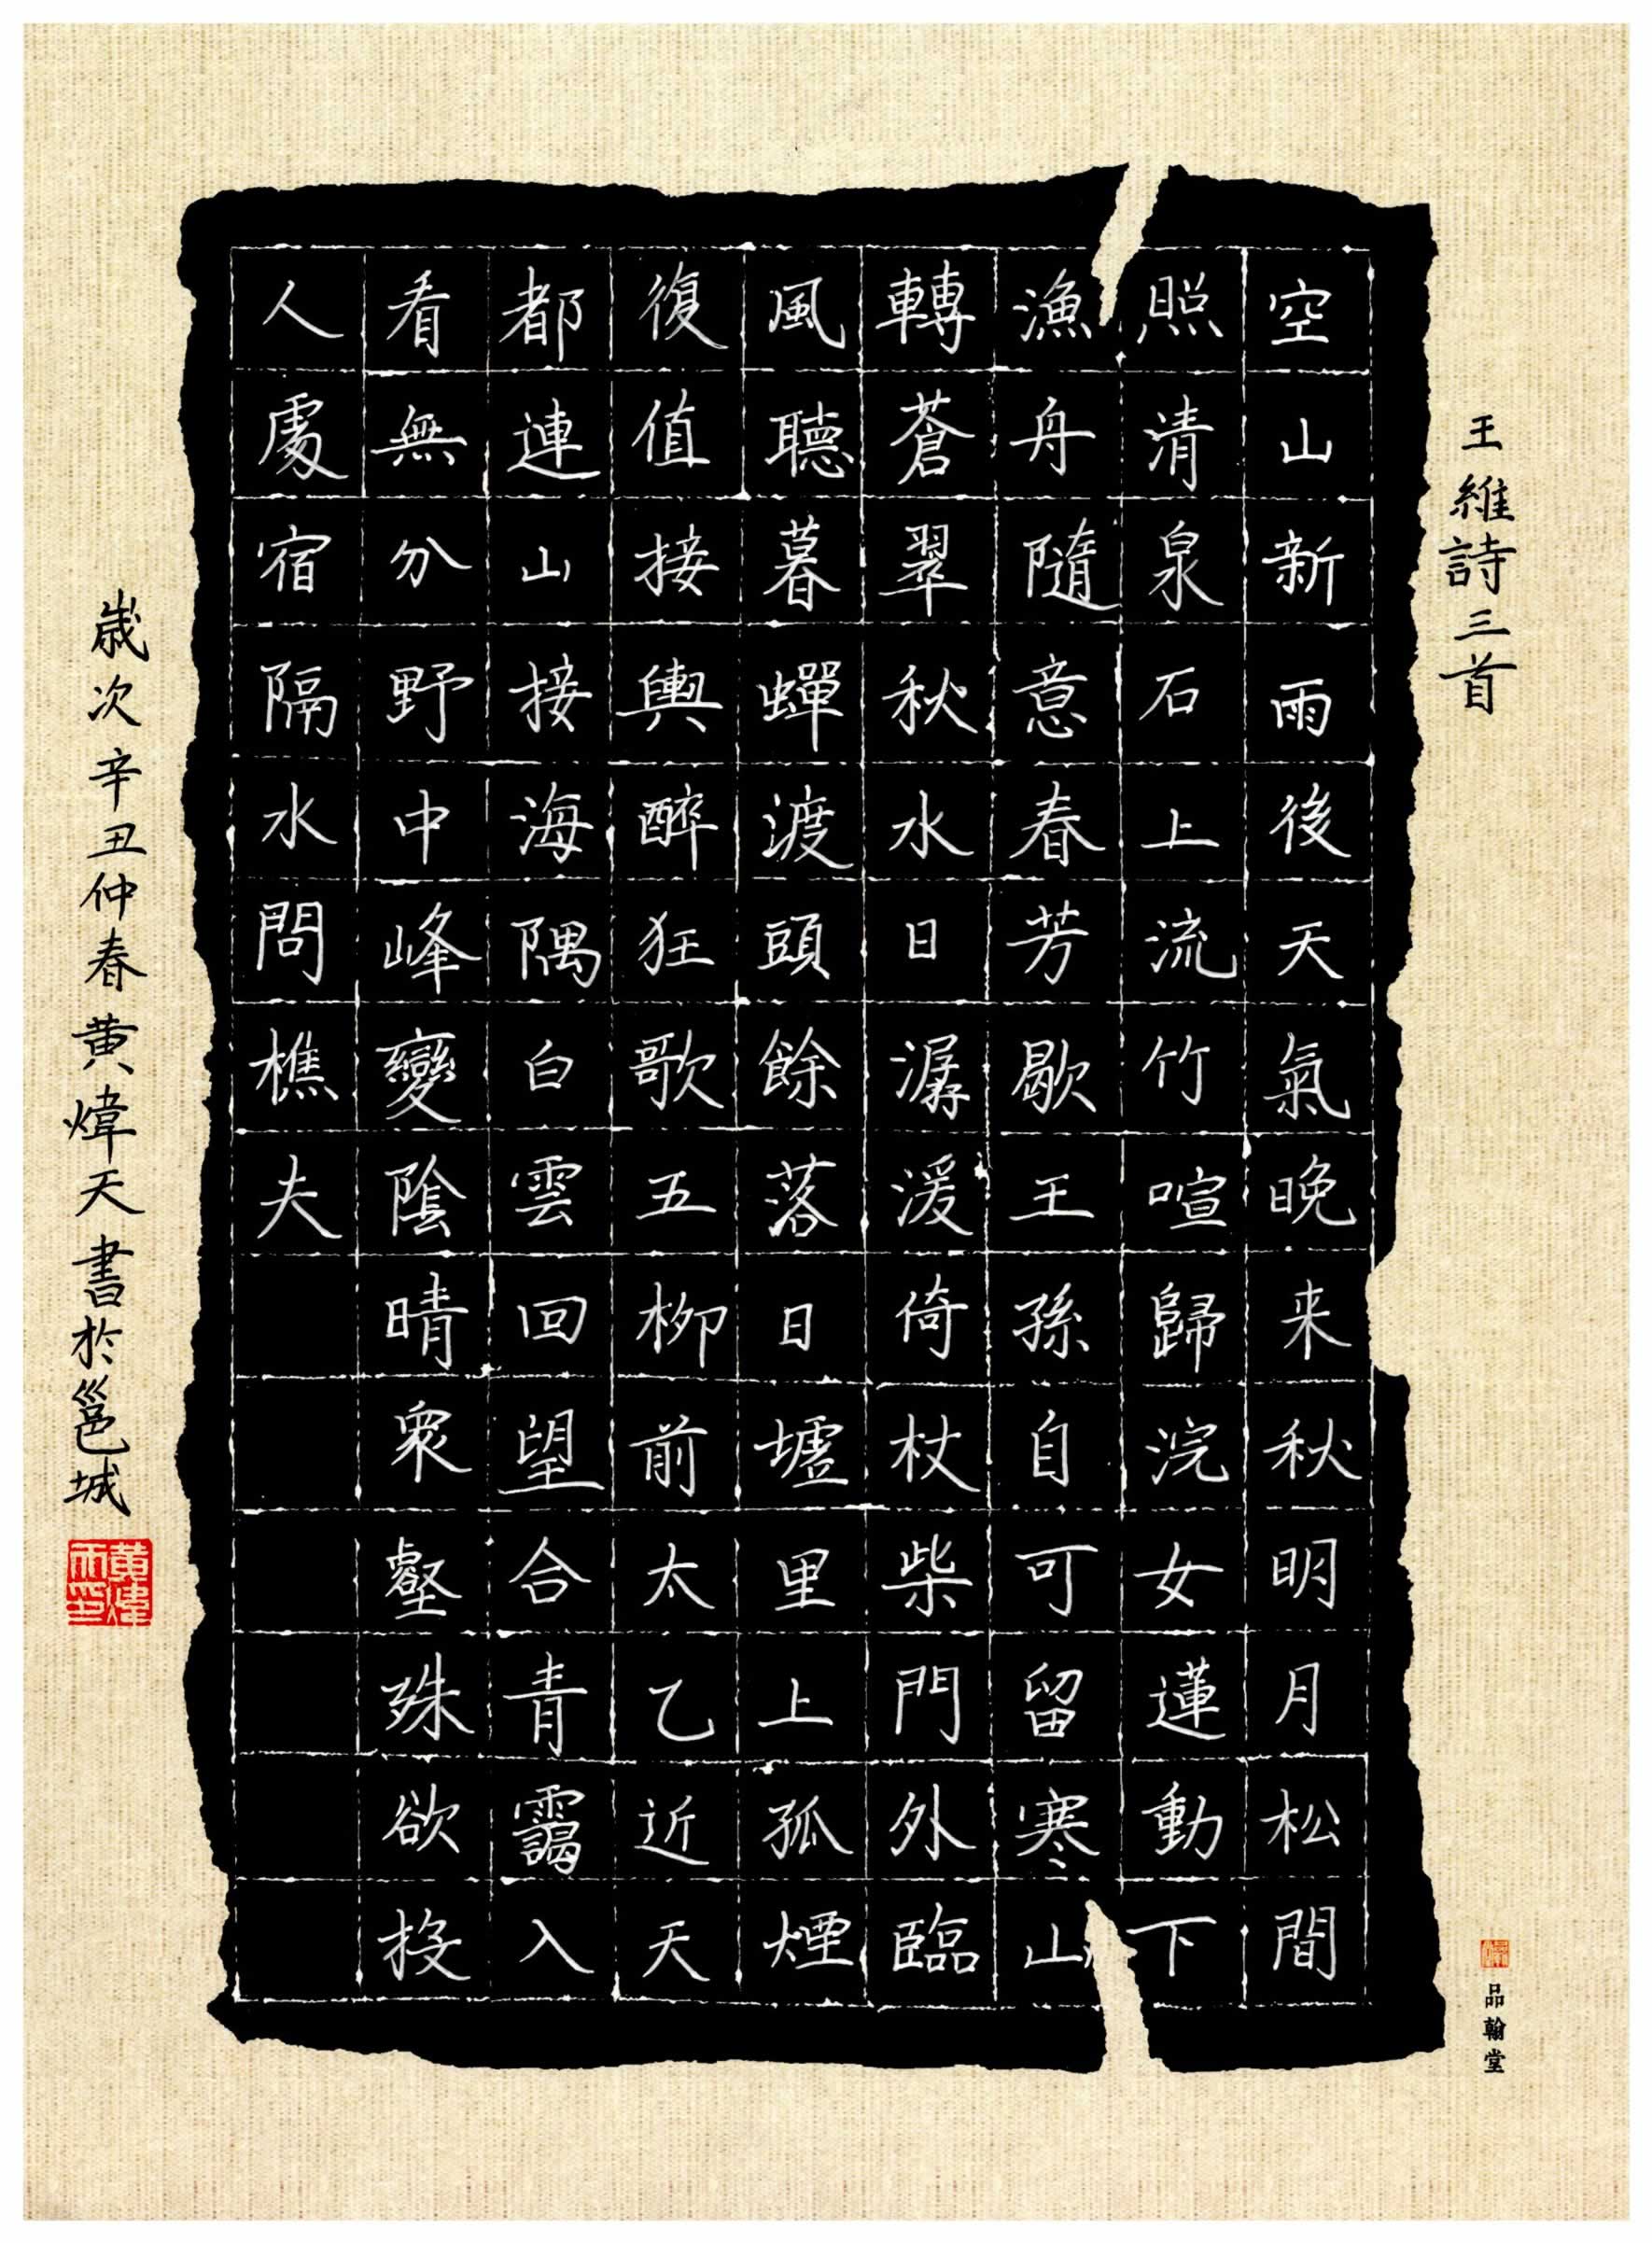 王維詩三首
空山新雨後天氣晚来秋明月松間
照清泉石上流竹喧歸浣女蓮動下
漁舟隨意春芳歇王孫自可留寒山
轉蒼翠秋水日潺湲倚杖柴門外臨
風聽暮蟬渡頭餘落日墟里上孤煙
復值接輿醉狂歌五柳前太乙近天
都連山接海隅白雲回望合青靄入
看無分野中峰變陰晴衆壑殊欲投
人處宿隔水問樵夫
歲次辛丑仲春黄煒天書於邕城
黄煒天印
品翰堂